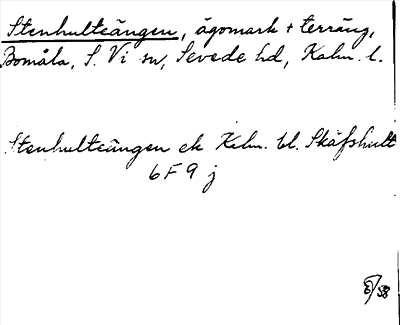 Stenhultsängen, ägomark + terräng,
Bomåla, S. Vi sn, Sevede hd, Kalm. l.
Stenhultsängen ek Kalm. bl. Skäfshult
6F9 j
/58